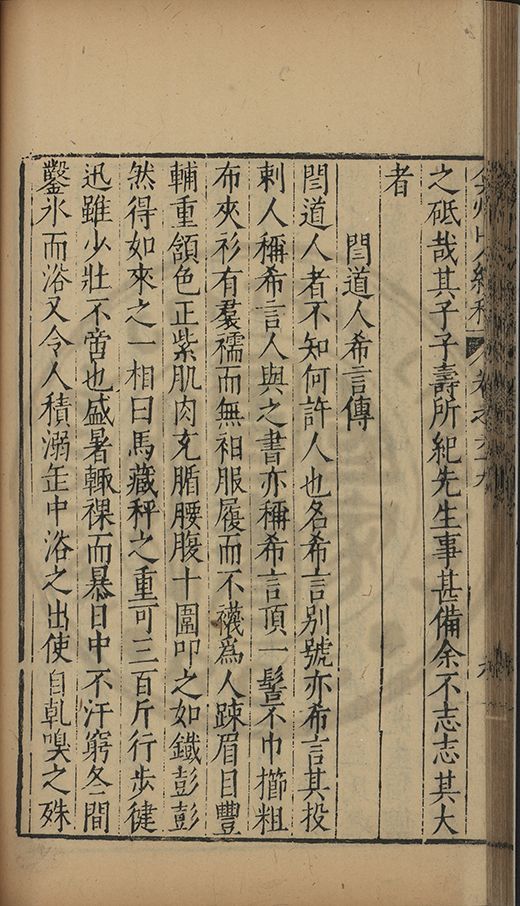 之砥哉其子子壽所紀先生事甚備余不志志其大
者
閆道人希言傳
閆道人者不知何許人也名希言别號亦希言其投
刺人稱希言人與之書亦稱希言頂一髻不巾櫛粗
布夾衫有羣襦而無袙服履而不襪爲人踈眉目豐
輔重頷色正紫肌肉充腯腰腹十圍叩之如鐡彭彭
然得如來之一相曰馬藏秤之重可三百斤行步徤
迅雖少壯不啻也盛暑輙裸而暴日中不汗窮冬間
鑿氷而浴又令人積溺缶中浴之出使自乹嗅之殊